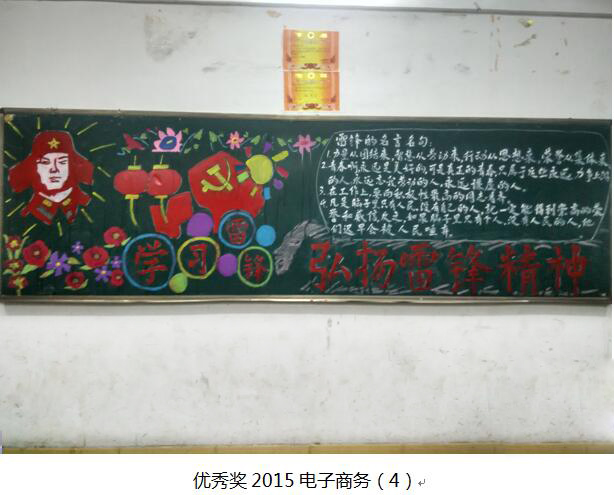 学习雷锋
雷锋的名言名句:
1.力量从团结来,智慧从劳动来,行动从思想来,荣誉从集体来
2.青春啊,永远是美好的,可是真正的青春,只属于这些永远力争上游
的人,永远忘我劳动的人,永远谦虚的人。
3.在工作上,要向积极性最高的同志看齐
4.凡是脑子里只有人民,没有自己的人,就一定能得到崇高的荣
誉和威信,反之,如果脑子里只有个人,没有人民的人,他
们迟早会被人民唾弃。
弘扬雷锋精神
优秀奖 2015 电子商务（4）